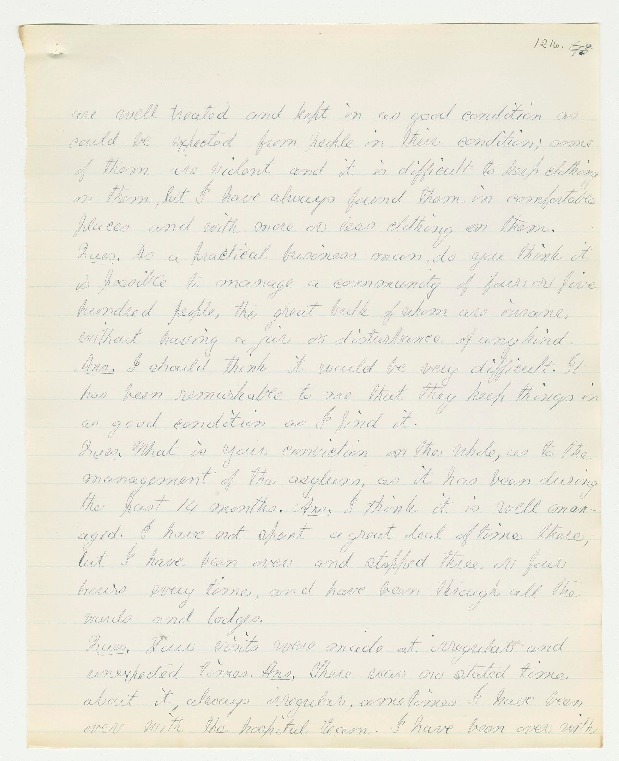 1216.
are well treated and kept in as good condition as
could be expected from people in their condition; some
of them are violent and it is difficult to keep clothing
on them, but I have always found them in comfortable
places and with more or less clothing on them.
Ques. As a practical business man, do you think it
is possible to manage a community of four or five
hundred people, the great bulk of whom are insane,
without having a jar or disturbance of any kind.
Ans. I should think it would be very difficult. It
has been remarkable to me that they keep things in
as good condition as I find it.
Ques. What is your conviction on the whole, as to the
management of the asylum, as it has been during
the past 14 months. Ans. I think it is well man-
aged. I have not spent a great deal of time there,
but I have been over and stopped three or four
hours every time, and have been through all the
wards and lodges.
Ques. Your visits were made at irregular and
unexpected times. Ans. There was no stated time
about it, always irregular, sometimes I have been
over with the hospital team. I have been over with